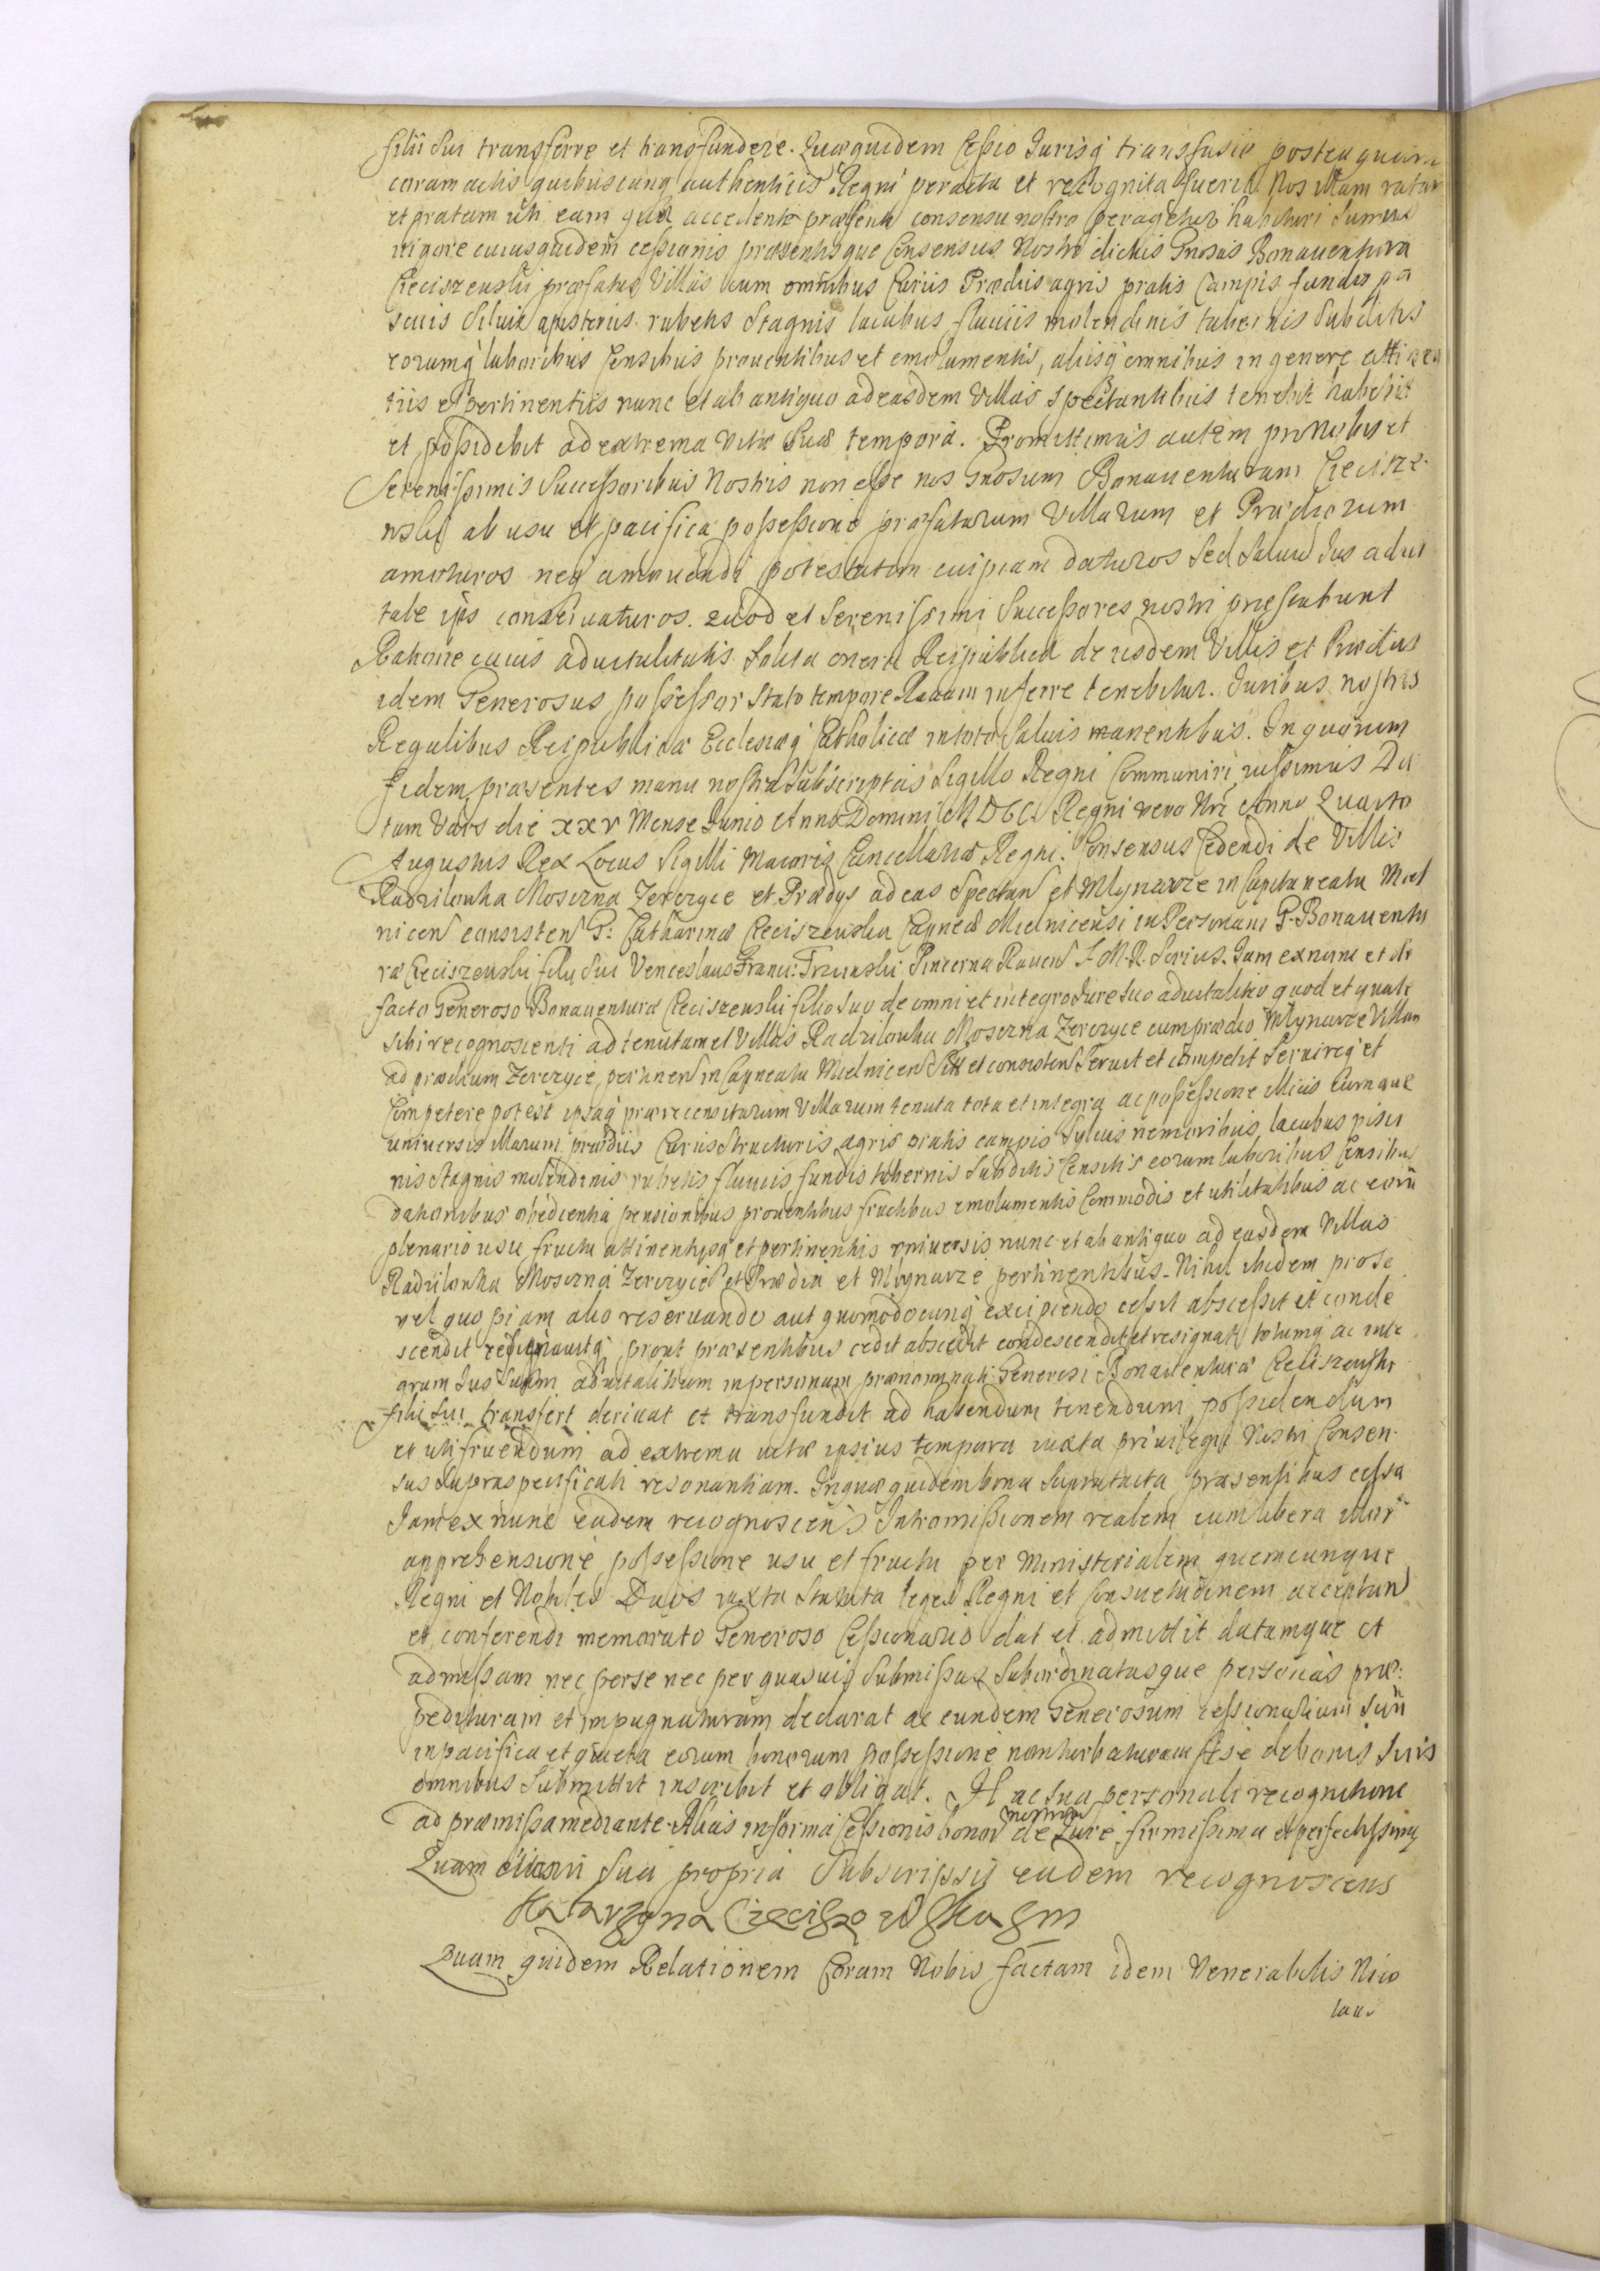 filii sui transferre et transfundere. Quæquidem Cessio Jurisq̃ transfusio posteaquam
coram actis quibuscunq̃ authenticis Regni peracta et recognita fuerit Nos illam ratam
et gratam uti eam quæ accedente præsenti consensu nostro peragetur habituri sumus
vigore cuiusquidem cessionis præsentisque Consensus Nostri dictus Gnosus Bonauentura
Cieciszeuski præfatas Villas cum omnibus Curiis Prædiis agris pratis Campis fundis pa
scuis Siluis rubetis Stagnis lacubus fluuiis molendinis tabernis Subditis
eorumq̃ laboribus Censibus prouentibus et emolumentis, aliisq̃ omnibus in genere attinen
tiis et pertinentiis nunc et ab antiquo ad easdem Villas spectantibus tenebit habebit
et possidebit ad extrema Vitæ Suæ tempora. Promittimus autem pro Nobis et
Serenissimis Successoribus Nostris non esse nos Gnosum Bonauenturam Ciecisze
uski ab usu et pacifica possessione præfatarum Villarum et Prædiorum
amoturos neq̃ amouendi potestatem cuipiam daturos Sed Saluũ Jus adui
tale ipś conseruaturos. Quod et Serenissimi Successores nostri præstabunt
Ratione cuius aduitalitatis Solita onera Reipublicæ de iisdem Villis et Prædiis
idem Generosus possessor Stato tempore Rauam inferre tenebitur. Juribus nostris
Regalibus Reipublicæ Ecclesiæq̃ Catholicæ intoto Saluis manentibus. In quorum
fidem præsentes manu nostra Subscriptas Sigillo Regni Communiri iussimus Da
tum Vars die XXV Mense Junio Anno Domini MDCC. Regni vero Nrĩ Anno Quarto
Augustus Rex Locus Sigilli Maioris Cancellariæ Regni. Consensus Cedendi de Villis
Radzilowka Moszczna Zerczyce et Prædys ad eas Spectan et Mlynarze in Capitaneatu Miel
nicen consisten G: Catharinæ Cieciszeuska Capneæ Mielnicensi in Personam G. Bonauentu
ræ Cieciszeuski filij Sui Venceslaus Franc: Trzinski Pincerna Rauen S. M. R. Srius. Jam exnunc et de
facto Generoso Bonauenturæ Cieciszeuski filio Suo de omni et integro Jure Suo aduitalitio quod et quale
sibi recognoscenti ad tenutam et Villas Radzilowka Moszczna Zerczyce cum prædio Mlynarze Villam
ad prædium Zerczyce pertinen in Capneatu Mielnicen Sitt et consisten Seruit et competit Seruireq̃ et
Competere potest ipsaq̃ prærecensitarum Villarum tenuta tota et integra ac possessione illius Cumque
uniuersis illarum prædiis Curiis Structuris agris pratis campis Syluis nemoribus lacubus pisci
nis Stagnis molendinis rubetis fluuiis fundis tabernis Subditis Censitis eorum laboribus Censibus
dationibus obedientia pensionibus prouentibus fructibus emolumentis Commodis et utilitatibus ac eorũ
plenario usu fructu attinentysq̃ et pertinentiis vniuersis nunc et ab antiquo ad easdem Villas
Radzilowka Moszczna Zerczyce et Prædia et Mlynarze pertinentibus. Nihil ibidem prose
vel quopiam alio reseruando aut quomodocunq̃ excipiendo cessit abscessit et conde
scendit resignauitq̃ prout præsentibus cedit abscedit condescendit et resignat totumq̃ ac inte
grum Jus Suum aduitalitium inpersonam prænominati Generosi Bonauenturæ Cieciszeuski
filii sui transfert deriuat et transfundit ad habendum tenendum possidendum
et utifruendum ad extrema uitæ ipsius tempora iuxta priuilegii Nostri Consen
sus Supraspecificati resonantiam. In quæ quidem bona Supratacta præsentibus cessa
Jam exnunc eadem recognoscens Intromissionem realem cum libera illor̃
apprehensione possessione usu et fructu per Ministerialem quemcunque
Regni et Nobiles Duos iuxta Statuta leges Regni et Consuetudinem acceptan
et conferendi memorato Generoso Cessionario dat et admittit datamque et
admissam nec perse nec per quasuis Submissas Subordinatasque personas præ:
pedituram et impugnaturam declarat ac eundem Generosum cessionarium Suũ
inpacifica et quieta eorum bonorum possessione nonturbaturam Sese debonis Suis
omnibus Submittit inscribit et obligat. Hac sua personali recognitione
ad præmissa mediante. Alias informa Cessionis bonor̃ de Jure firmissima et perfectissima
Quam etiam sua propria Subscripsit eadem recognoscens
Katarzyna Cieciszewska Sm
Quam quidem Relationem Coram Nobis factam idem Venerabilis Nico
laus